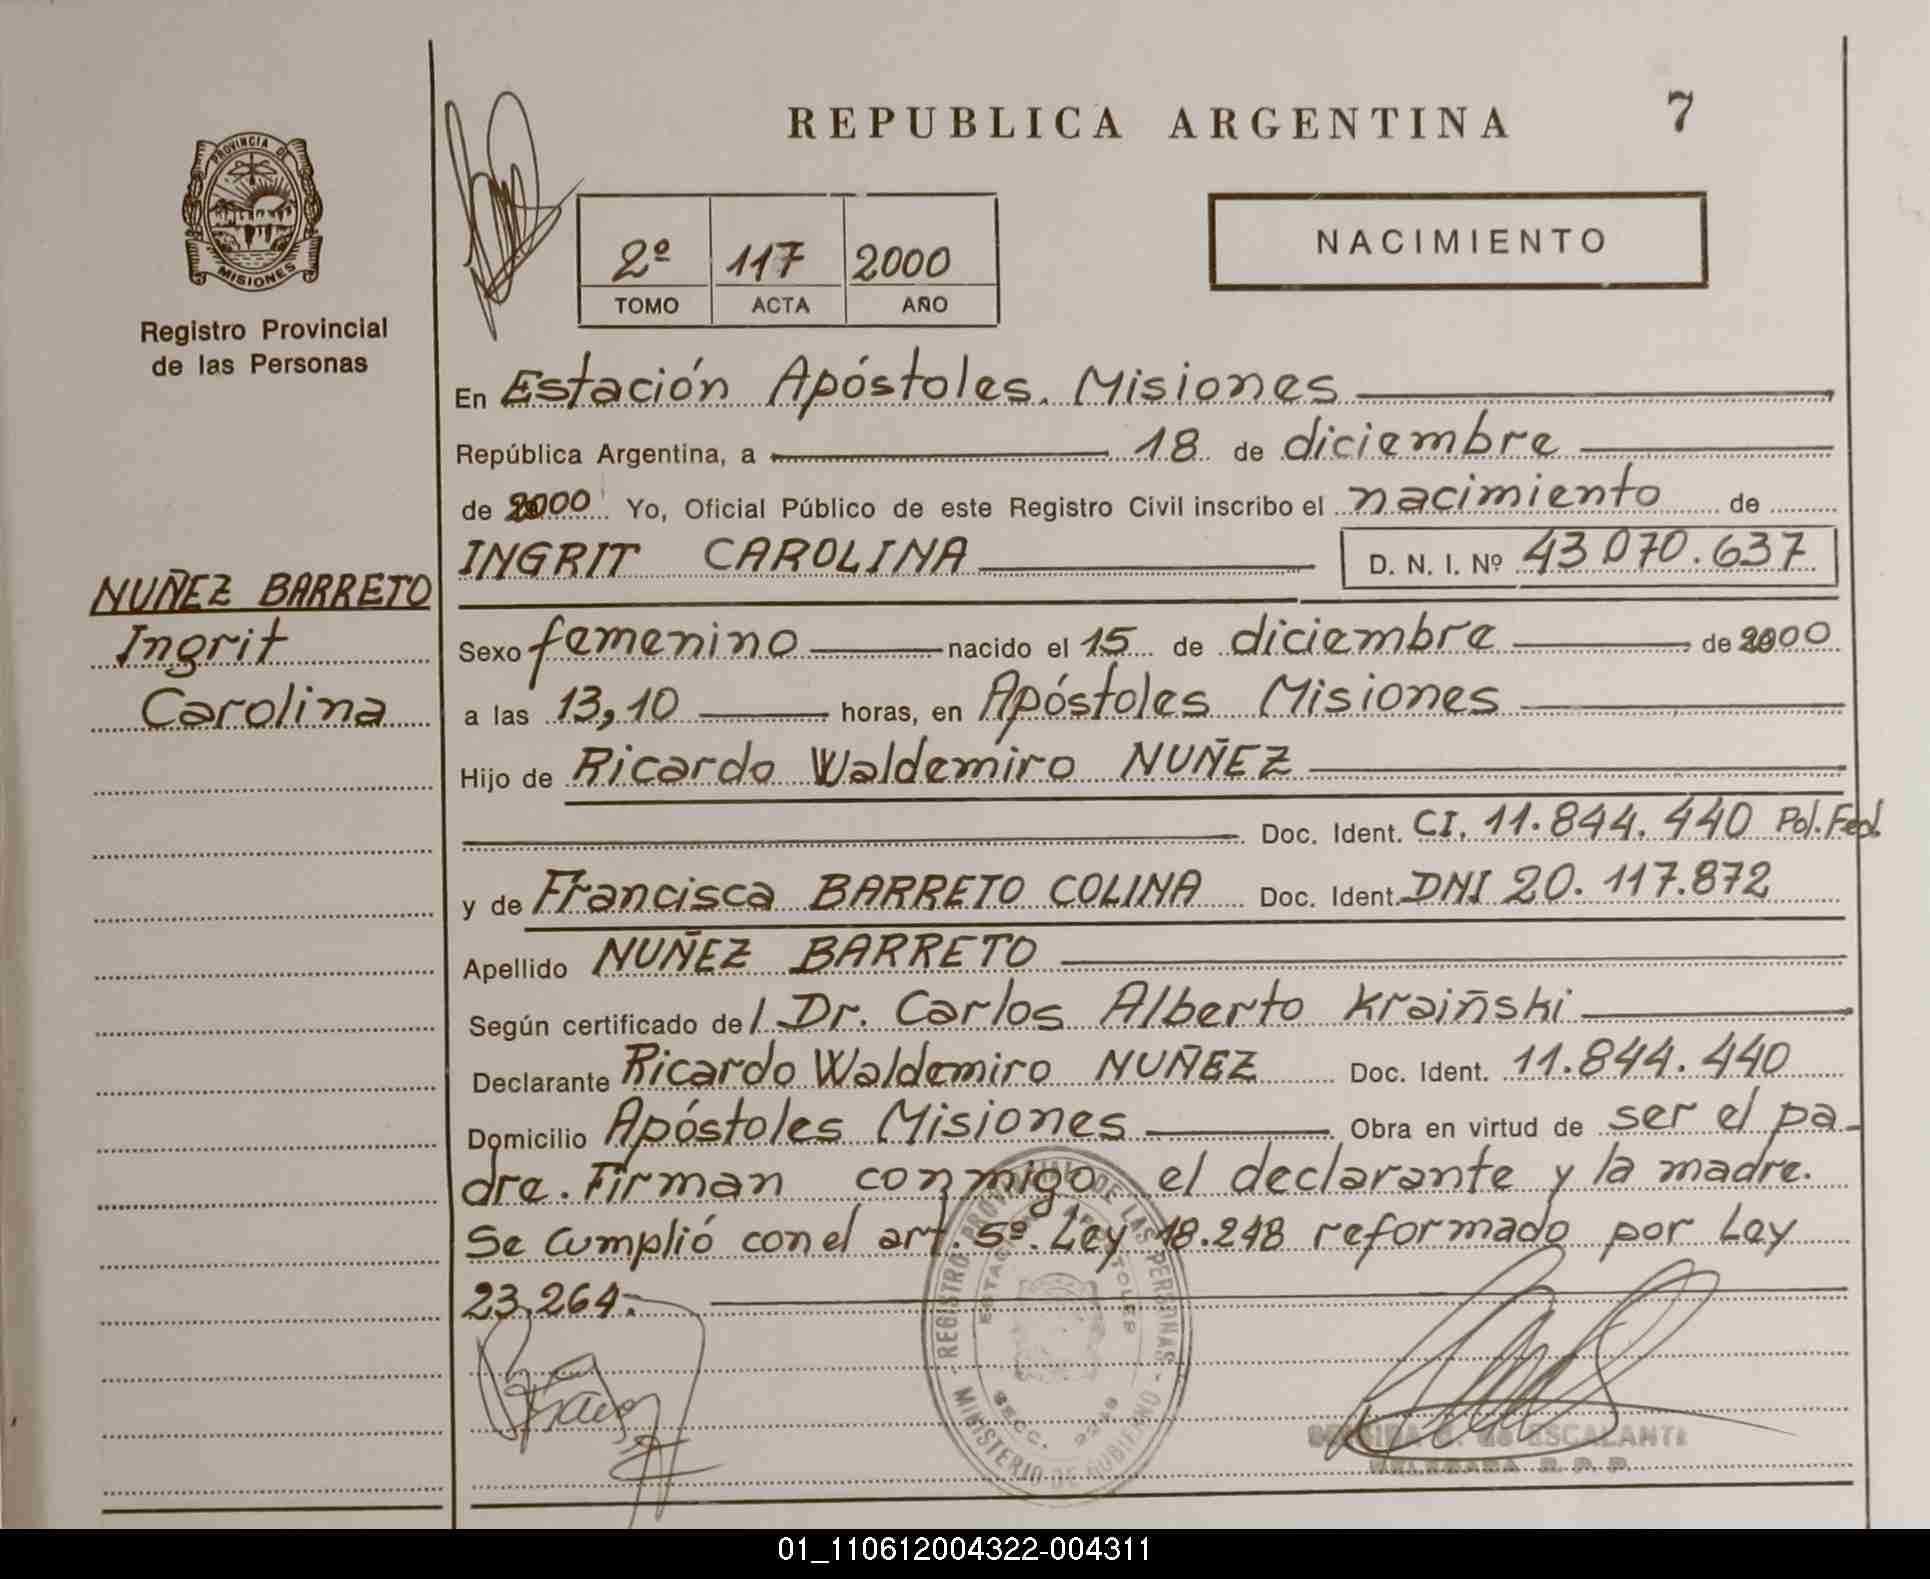 REPUBLICA ARGENTINA
7
PROVINCIA DE
MISIONES
Registro Provincial
de las Personas
2º 117 2000
TOMO ACTA AÑO
NACIMIENTO
En Estación Apóstoles. Misiones
República Argentina, a 18 de diciembre
de 2000 Yo, Oficial Público de este Registro Civil inscribo el nacimiento de
INGRIT CAROLINA D. N. I. Nº 43.070.637
NUÑEZ BARRETO
Ingrit
Carolina
Sexo femenino nacido el 15 de diciembre de 2000
a las 13,10 horas, en Apóstoles Misiones
Hijo de Ricardo Waldemiro NUÑEZ
Doc. Ident. CI. 11.844.440 Pol. Fed.
y de Francisca BARRETO COLINA Doc. Ident. DNI 20.117.872
Apellido NUÑEZ BARRETO
Según certificado del Dr. Carlos Alberto Kraiñski
Declarante Ricardo Waldemiro NUÑEZ Doc. Ident. 11.844.440
Domicilio Apóstoles Misiones Obra en virtud de ser el pa-
dre. Firman conmigo el declarante y la madre.
Se cumplió con el art. 5º. Ley 18.248 reformado por Ley
23.264.
REGISTRO PROVINCIAL DE LAS PERSONAS
ESTACION APOSTOLES
SECC.
MINISTERIO DE GOBIERNO
de ESCALANTE
DELEGADA R. P. P.
01_110612004322-004311